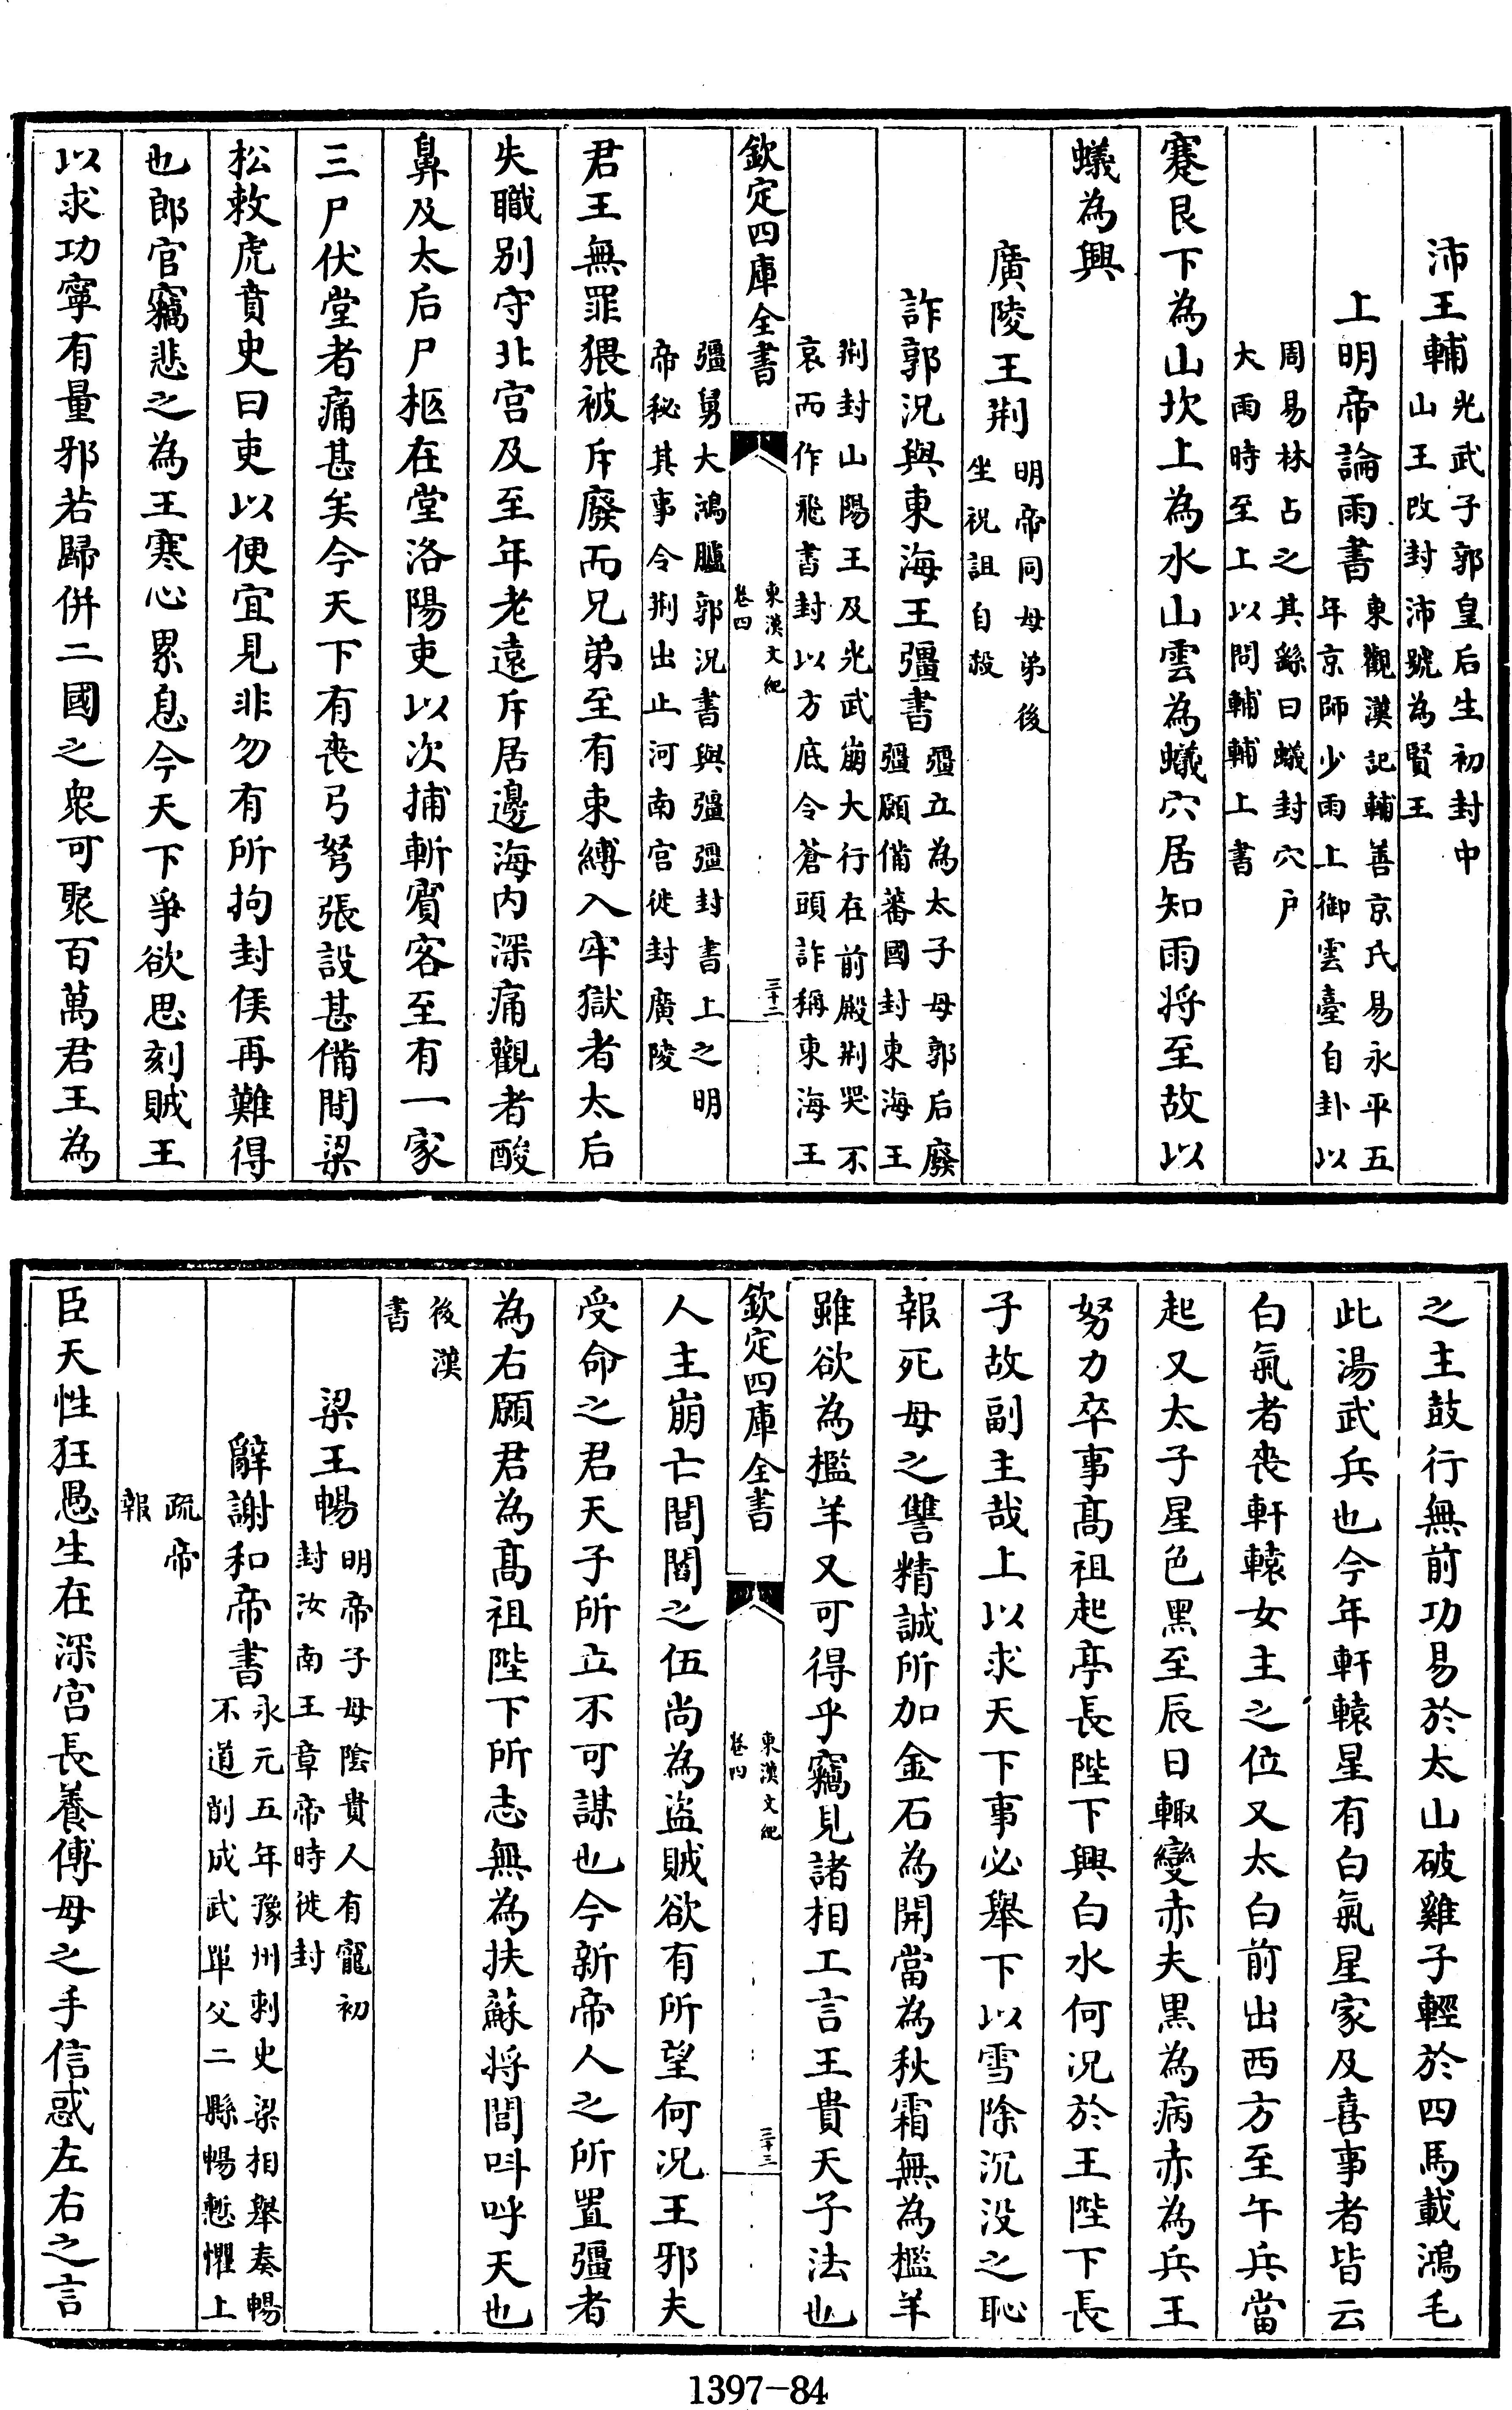 沛王輔光武子郭皇后生初封中山王改封沛號為賢王
上明帝論雨書東觀漢記輔善京氏易永平五年京師少雨上御雲臺自卦以
周易林占之其繇曰蟻封穴户大雨時至上以問輔輔上書
蹇艮下為山坎上為水山雲為蟻穴居知雨將至故以
蟻為興
廣陵王荆明帝同母弟後坐祝詛自殺
詐郭况與東海王彊書彊立為太子母郭后廢彊願備蕃國封東海王
荆封山陽王及光武崩大行在前殿荆哭不哀而作飛書封以方底令蒼頭詐稱東海王
欽定四庫全書
東漢文紀
卷四
三十二
彊舅大鴻臚郭况書與彊彊封書上之明帝秘其事令荆出止河南宫徙封廣陵
君王無罪猥被斥廢而兄弟至有束縛入牢獄者太后
失職别守北宫及至年老遠斥居邊海内深痛觀者酸
鼻及太后尸柩在堂洛陽吏以次捕斬賓客至有一家
三尸伏堂者痛甚矣今天下有喪弓弩張設甚備間梁
松敕虎賁史曰吏以便宜見非勿有所拘封侯再難得
也郎官竊悲之為王寒心累息今天下爭欲思刻賊王
以求功寧有量邪若歸併二國之衆可聚百萬君王為
之主鼓行無前功易於太山破雞子輕於四馬載鴻毛
此湯武兵也今年軒轅星有白氣星家及喜事者皆云
白氣者喪軒轅女主之位又太白前出西方至午兵當
起又太子星色黑至辰日輙變赤夫黑為病赤為兵王
努力卒事髙祖起亭長陛下興白水何况於王陛下長
子故副主哉上以求天下事必舉下以雪除沉没之恥
報死母之讐精誠所加金石為開當為秋霜無為檻羊
雖欲為檻羊又可得乎竊見諸相工言王貴天子法也
欽定四庫全書
東漢文紀
卷四
三十三
人主崩亡閭閻之伍尚為盜賊欲有所望何况王邪夫
受命之君天子所立不可謀也今新帝人之所置彊者
為右願君為髙祖陛下所志無為扶蘇將閭呌呼天也
後漢書
梁王暢明帝子母陰貴人有寵初封汝南王章帝時徙封
辭謝和帝書永元五年豫州刺史梁相舉奏暢不道削成武單父二縣暢慙懼上
疏帝報
臣天性狂愚生在深宫長養傅母之手信惑左右之言
1397-84